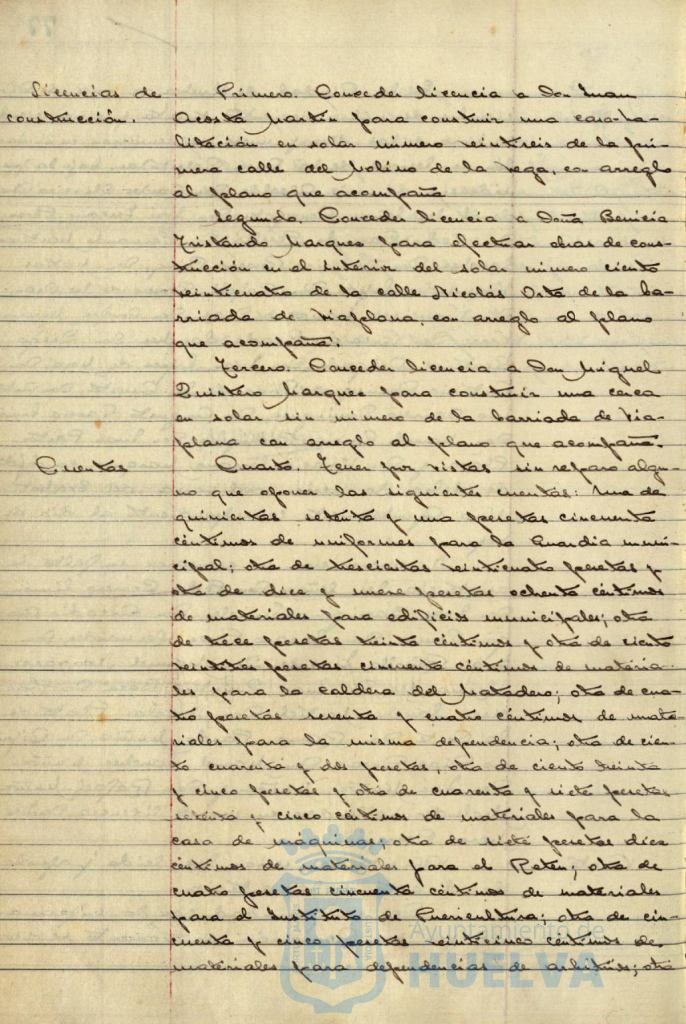 Licencias de
construcción.
Primero. Conceder licencia a Don Juan
Acosta Martín para construir una casa-ha-
bitación en solar número veintiseis de la pri-
mera calle del Molino de la Vega, con arreglo
al plano que acompaña
Segundo. Conceder licencia a Doña Benicia
Tristando Marquez para efectuar obras de cons-
trucción en el interior del solar número ciento
veinticuatro de la calle Nicolás Orta de la ba-
rriada de Viaplana, con arreglo al plano
que acompaña.
Tercero. Conceder licencia a Don Miguel
Quintero Marquez para construir una cerca
en solar sin número de la barriada de Via-
plana con arreglo al plano que acompaña.
Cuentas
Cuarto. Tener por vistas sin reparo algu-
no que oponer las siguientes cuentas: Una de
quinientas setenta y una pesetas cincuenta
céntimos de uniformes para la Guardia muni-
cipal; otra de trescientas veinticuatro pesetas y
otra de diez y nueve pesetas ochenta céntimos
de materiales para edificios municipales; otra
de trece pesetas treinta céntimos y otra de ciento
veintitres pesetas cincuenta céntimos de materia-
les para la caldera del Matadero; otra de cua-
tro pesetas sesenta y cuatro céntimos de mate-
riales para la misma dependencia; otra de cien-
to cuarenta y dos pesetas, otra de ciento treinta
y cinco pesetas y otra de cuarenta y siete pesetas
setenta y cinco céntimos de materiales para la
casa de máquinas; otra de siete pesetas diez
céntimos de materiales para el Retén; otra de
cuatro pesetas cincuenta céntimos de materiales
para el Instituto de Puericultura; otra de cin-
cuenta y cinco pesetas veinticinco céntimos de
materiales para dependencias de arbitrios; otra
Ayuntamiento de
HUELVA